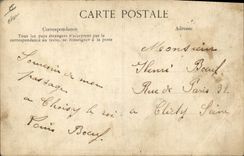 CARTE POSTALE
Correspondance
Tous les pays étrangers n'acceptent pas la
correspondance au recto, se renseigner à la poste
Adresse
Souvenir de mon
passage
a Choisy le roi
Louis Boeuf
Monsieur
Henri Boeuf
Rue de Paris 31
a Clichy Seine